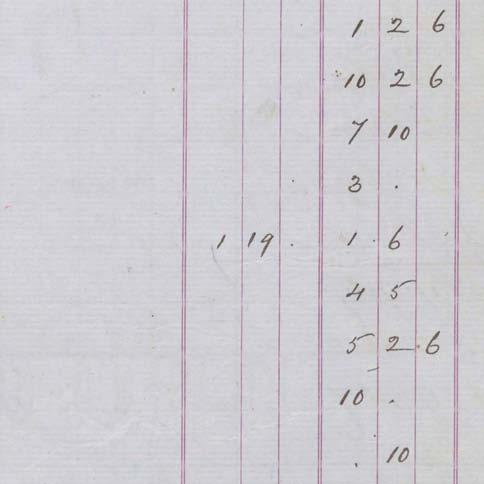 1 2 6
10 2 6
7 10
3 .
1 19 . 1 . 6
4 5
5 2 . 6
10 .
. 10